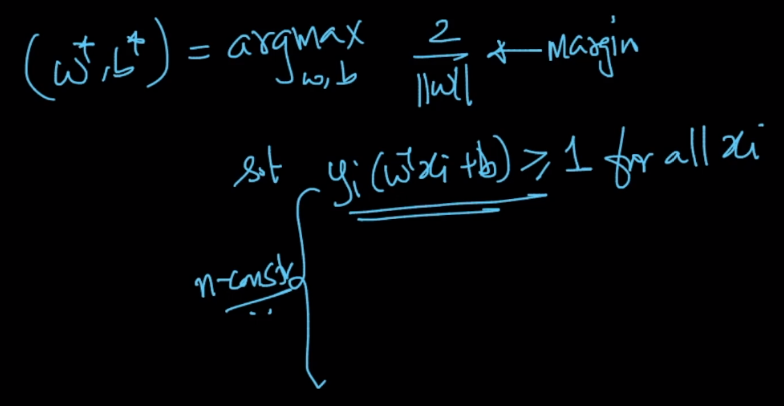 (w*, b*) = argmax w,b 2/||w|| ← Margin
s.t yi (wᵀxi + b) ≥ 1 for all xi
n-consts